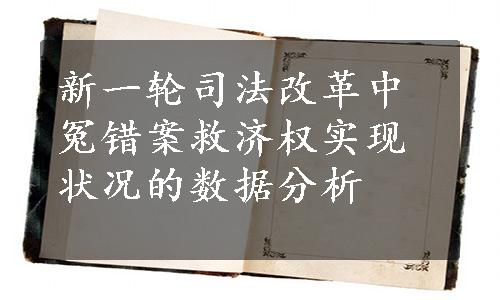 新一轮司法改革中
冤错案救济权实现
状况的数据分析